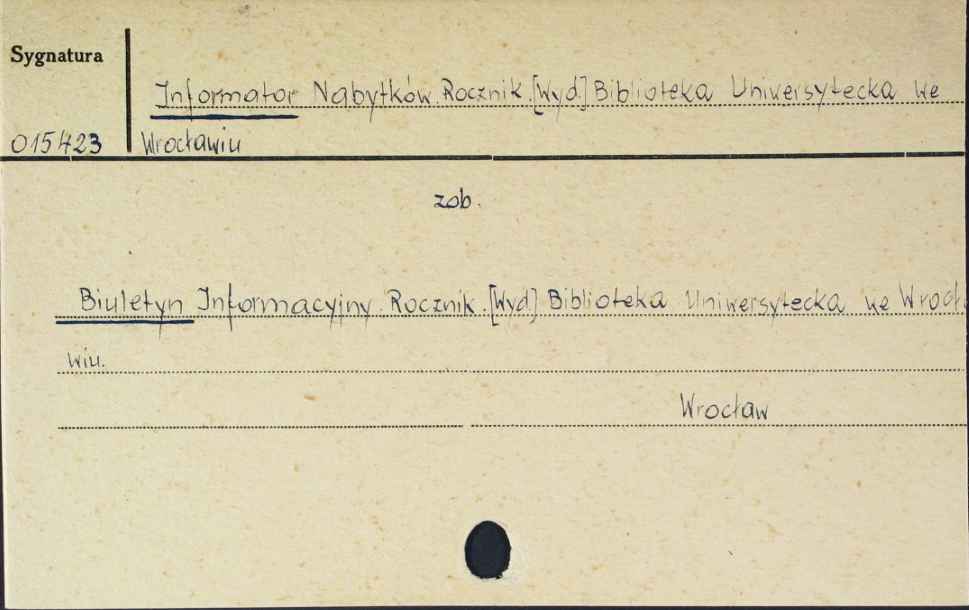 Sygnatura
Informator Nabytków. Rocznik. [Wyd.] Biblioteka Uniwersytecka we
015423 Wrocławiu
zob.
Biuletyn Informacyjny. Rocznik. [Wyd] Biblioteka Uniwersytecka we Wrocła
wiu.
Wrocław